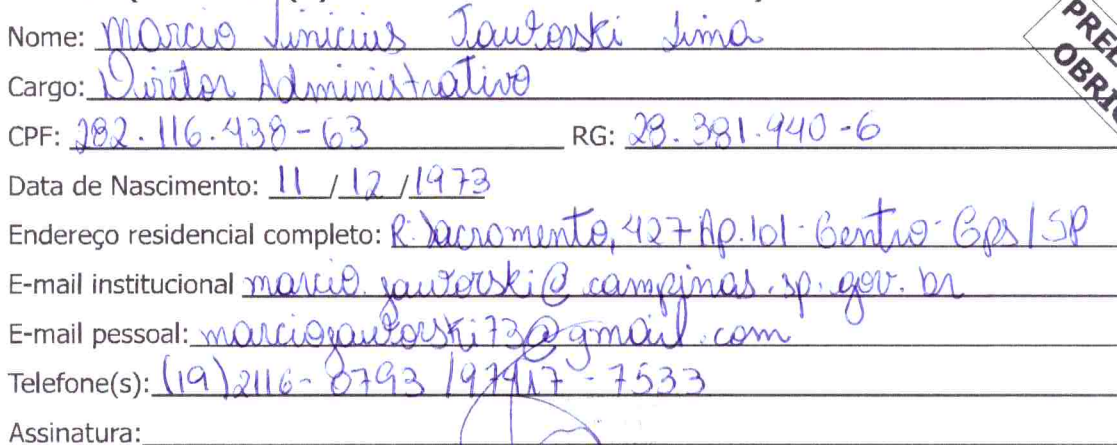 Nome: Marcio Vinicius Jaworski Lima
Cargo: Diretor Administrativo
CPF: 282.116.438-63 RG: 28.381.940-6
Data de Nascimento: 11/12/1973
Endereço residencial completo: R. Sacramento, 427 Ap. 101 - Centro - Cps/SP
E-mail institucional marcio.jaworski@campinas.sp.gov.br
E-mail pessoal: marciojaworski73@gmail.com
Telefone(s): (19) 2116-8793 / 97417-7533
Assinatura: